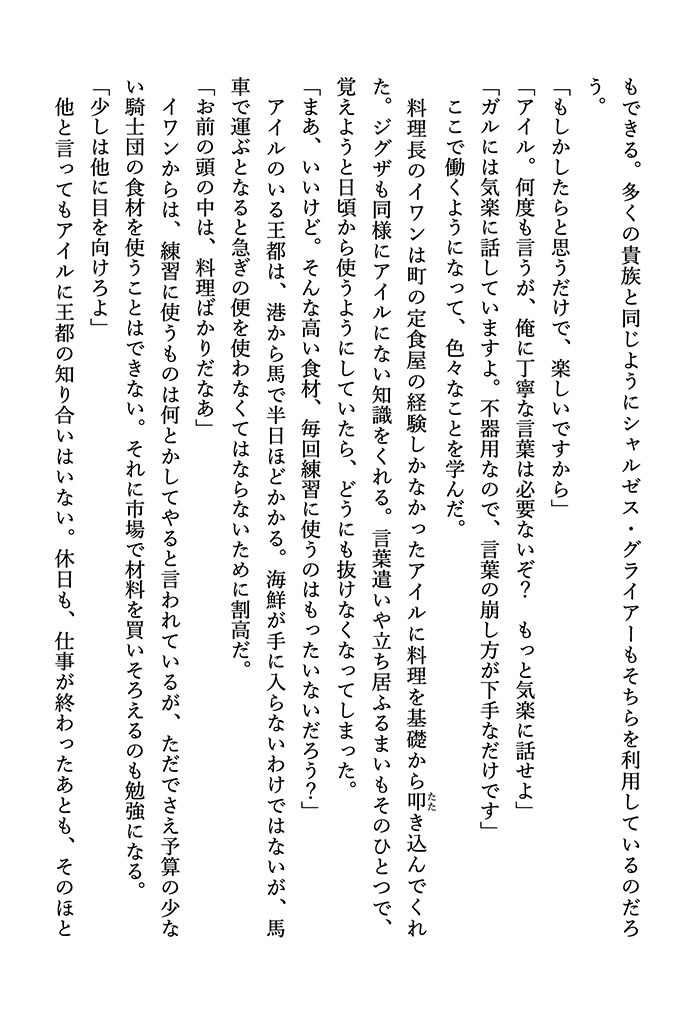 もできる。多くの貴族と同じようにシャルゼス・グライアーもそちらを利用しているのだろ
う。
「もしかしたらと思うだけで、楽しいですから」
「アイル。何度も言うが、俺に丁寧な言葉は必要ないぞ？　もっと気楽に話せよ」
「ガルには気楽に話していますよ。不器用なので、言葉の崩し方が下手なだけです」
　ここで働くようになって、色々なことを学んだ。
　料理長のイワンは町の定食屋の経験しかなかったアイルに料理を基礎から叩き込んでくれ
た。ジグザも同様にアイルにない知識をくれる。言葉遣いや立ち居ふるまいもそのひとつで、
覚えようと日頃から使うようにしていたら、どうにも抜けなくなってしまった。
「まあ、いいけど。そんな高い食材、毎回練習に使うのはもったいないだろう？」
　アイルのいる王都は、港から馬で半日ほどかかる。海鮮が手に入らないわけではないが、馬
車で運ぶとなると急ぎの便を使わなくてはならないために割高だ。
「お前の頭の中は、料理ばかりだなあ」
　イワンからは、練習に使うものは何とかしてやると言われているが、ただでさえ予算の少な
い騎士団の食材を使うことはできない。それに市場で材料を買いそろえるのも勉強になる。
「少しは他に目を向けろよ」
　他と言ってもアイルに王都の知り合いはいない。休日も、仕事が終わったあとも、そのほと